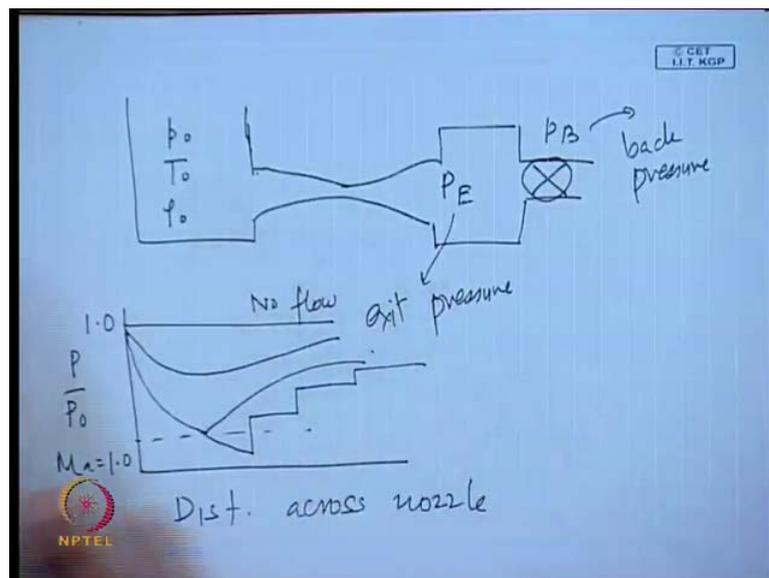 © CET
I.I.T. KGP
p₀
T₀
ρ₀
P_E
P_B
back
pressure
exit pressure
No flow
1.0
P
P₀
Ma=1.0
Dist. across nozzle
NPTEL